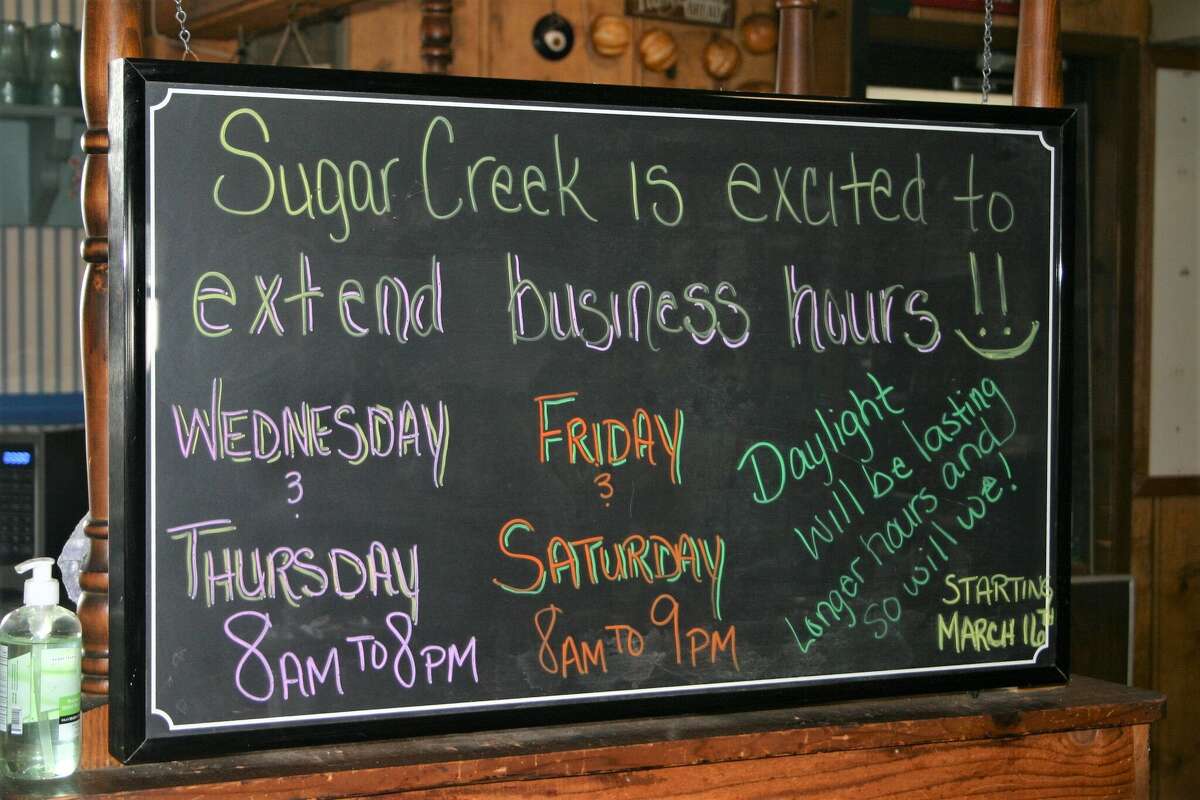 Sugar Creek is excited to
extend business hours !!
WEDNESDAY
&
THURSDAY
8AM TO 8PM
FRIDAY
&
SATURDAY
8AM TO 9PM
Daylight
will be lasting
Longer hours and
so will we!
STARTING
MARCH 16TH